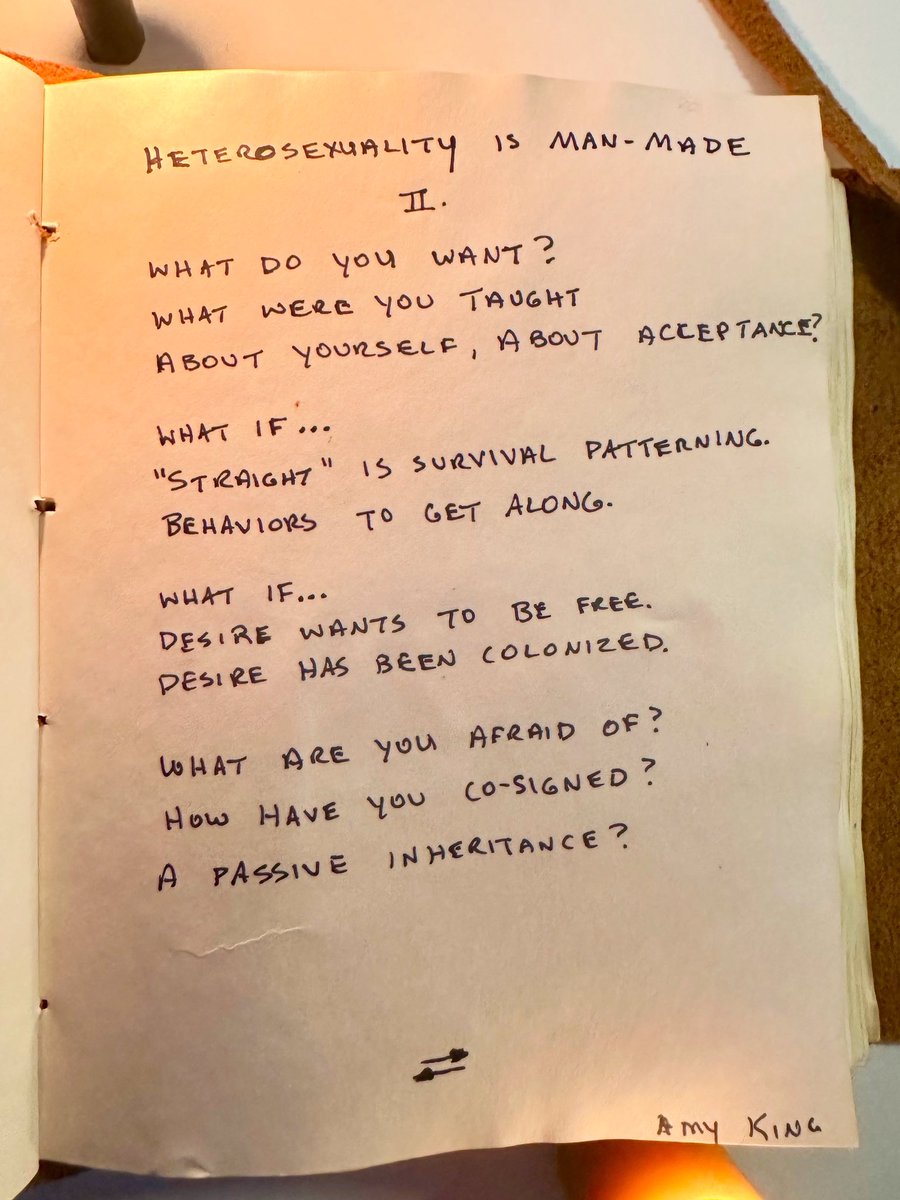 HETEROSEXUALITY IS MAN-MADE
II.
WHAT DO YOU WANT?
WHAT WERE YOU TAUGHT
ABOUT YOURSELF, ABOUT ACCEPTANCE?
WHAT IF...
"STRAIGHT" IS SURVIVAL PATTERNING.
BEHAVIORS TO GET ALONG.
WHAT IF...
DESIRE WANTS TO BE FREE.
DESIRE HAS BEEN COLONIZED.
WHAT ARE YOU AFRAID OF?
HOW HAVE YOU CO-SIGNED?
A PASSIVE INHERITANCE?
AMY KING